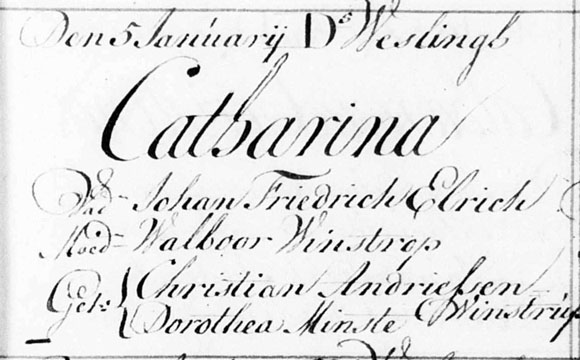 Den 5 Januarÿ Ds Weslingh
Catharina
Vad- Johan Friedrich Elrich
Moed- Walboor Winstrop
Get: { Christian Andriessen
Dorothea Minste Winstrup